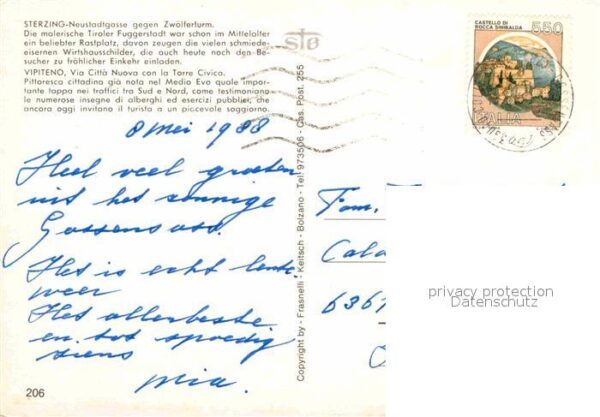 STERZING-Neustadtgasse gegen Zwölferturm.
Die malerische Tiroler Fuggerstadt war schon im Mittelalter
ein beliebter Rastplatz, davon zeugen die vielen schmiede-
eisernen Wirtshausschilder, die auch heute noch den Be-
sucher zu fröhlicher Einkehr einladen.
VIPITENO, Via Città Nuova con la Torre Civica.
Pittoresca cittadina già nota nel Medio Evo quale impor-
tante tappa nei traffici tra Sud e Nord, come testimoniano
le numerose insegne di alberghi ed esercizi pubblici, che
ancora oggi invitano il turista a un piccevole soggiorno.
8 Mei 1988
Heel veel groeten
uit het zonnige
Gossensass.
Het is echt lente
weer
Het allerbeste
en tot spoedig
ziens
Mia.
206
Copyright by - Frasnelli - Keitsch - Bolzano - Tel. 973506 - Cas. Post. 255
CASTELLO DI
ROCCA SINIBALDA
550
ITALIA
Fam.
Cala
6361
privacy protection
Datenschutz